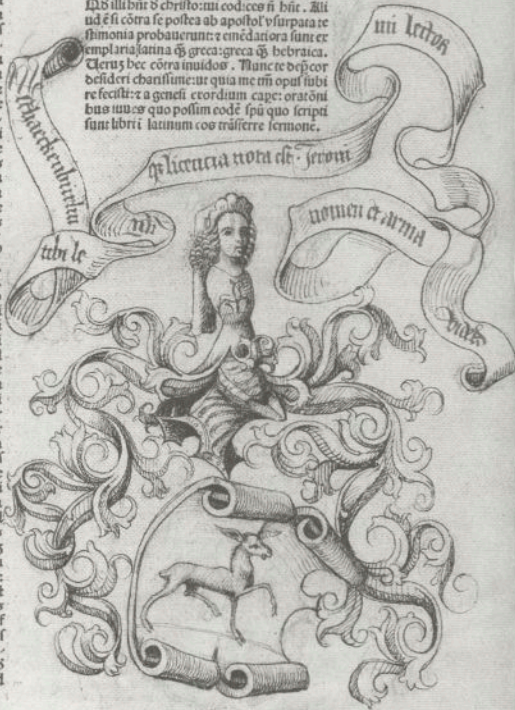 Qd illi hnt d christo: tui codices n hnt. Ali
ud ē si cōtra se postea ab apostol' vsurpata te
stimonia probauerunt: ⁊ emēdatiora sunt ex
emplaria latina q̄ȝ greca: greca q̄ȝ hebraica.
Ueruȝ hec cōtra inuidos. Nunc te dep̄cor
desideri charissime: ut quia me tm̄ opus subi
re fecisti: ⁊ a genesi exordium cape: oratōni
bus iuues quo possim eodē spū quo scripti
sunt libri ī latinum eos trāsferre sermone.
mi lector
licencia nota est Jeroni
tibi le
nomen et arma
vides